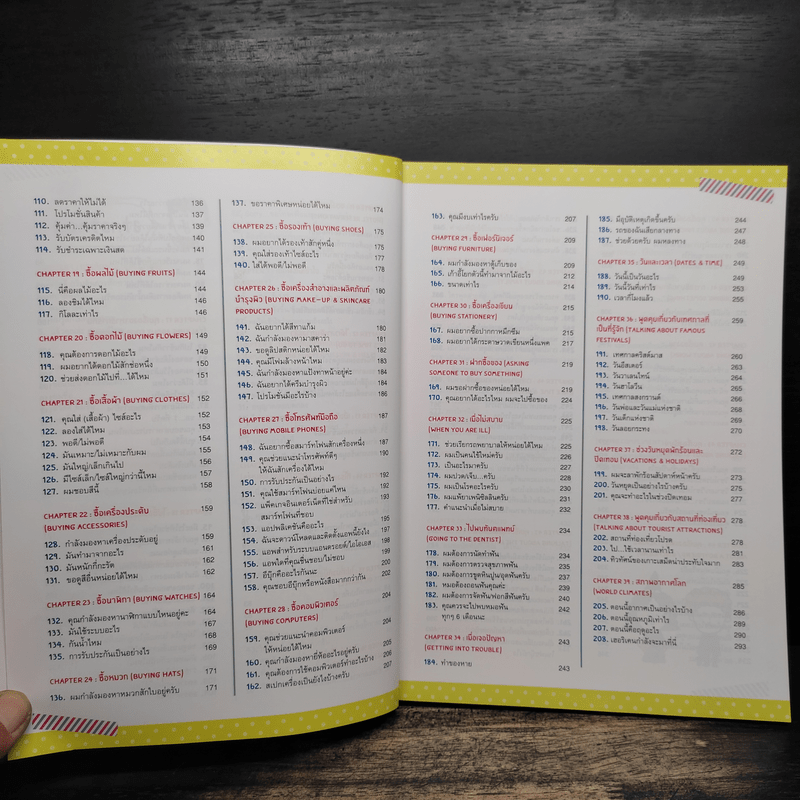 110. ลดราคาให้ไม่ได้ 136
111. โปรโมชั่นสินค้า 137
112. คุ้มค่า...คุ้มราคาจริงๆ 139
113. รับบัตรเครดิตไหม 140
114. รับชำระเฉพาะเงินสด 141
CHAPTER 19 : ซื้อผลไม้ (BUYING FRUITS) 144
115. นี่คือผลไม้อะไร 144
116. ลองชิมได้ไหม 146
117. กิโลละเท่าไร 146
CHAPTER 20 : ซื้อดอกไม้ (BUYING FLOWERS) 149
118. คุณต้องการดอกไม้อะไร 149
119. ผมอยากได้ดอกไม้สักช่อหนึ่ง 150
120. ช่วยส่งดอกไม้ไปที่...ได้ไหม 151
CHAPTER 21 : ซื้อเสื้อผ้า (BUYING CLOTHES) 152
121. คุณใส่ (เสื้อผ้า) ไซส์อะไร 152
122. ลองใส่ได้ไหม 153
123. พอดี/ไม่พอดี 154
124. มันเหมาะ/ไม่เหมาะกับผม 155
125. มันใหญ่/เล็กเกินไป 156
126. มีไซส์เล็ก/ไซส์ใหญ่กว่านี้ไหม 157
127. ผมชอบสีนี้ 158
CHAPTER 22 : ซื้อเครื่องประดับ (BUYING ACCESSORIES) 159
128. กำลังมองหาเครื่องประดับอยู่ 159
129. มันทำมาจากอะไร 161
130. มันหนักกี่กะรัต 161
131. ขอดูสีอื่นหน่อยได้ไหม 162
CHAPTER 23 : ซื้อนาฬิกา (BUYING WATCHES) 164
132. คุณกำลังมองหานาฬิกาแบบไหนอยู่คะ 164
133. มันใช้ระบบอะไร 167
134. กันน้ำไหม 168
135. การรับประกันเป็นอย่างไร 169
CHAPTER 24 : ซื้อหมวก (BUYING HATS) 171
136. ผมกำลังมองหาหมวกสักใบอยู่ครับ 171
137. ขอราคาพิเศษหน่อยได้ไหม 174
CHAPTER 25 : ซื้อรองเท้า (BUYING SHOES) 175
138. ผมอยากได้รองเท้าสักคู่หนึ่ง 175
139. คุณใส่รองเท้าไซส์อะไร 176
140. ใส่ได้พอดี/ไม่พอดี 178
CHAPTER 26 : ซื้อเครื่องสำอางและผลิตภัณฑ์ 180
บำรุงผิว (BUYING MAKE-UP & SKINCARE
PRODUCTS)
141. ฉันอยากได้สีทาแก้ม
142. ฉันกำลังมองหามาสคาร่า
143. ขอดูลิปสติกหน่อยได้ไหม
144. คุณมีโฟมล้างหน้าไหม
145. ฉันกำลังมองหาแป้งทาหน้าอยู่ค่ะ
146. ฉันอยากได้ครีมบำรุงผิว
147. โปรโมชั่นมีอะไรบ้าง 186
CHAPTER 27 : ซื้อโทรศัพท์มือถือ 187
(BUYING MOBILE PHONES)
148. ฉันอยากซื้อสมาร์ทโฟนสักเครื่องหนึ่ง 187
149. คุณช่วยแนะนำโทรศัพท์ดีๆ
ให้ฉันสักเครื่องได้ไหม
150. การรับประกันเป็นอย่างไร
151. คุณใช้สมาร์ทโฟนบ่อยแค่ไหน
152. แพ็คเกจอินเตอร์เน็ตที่ใช้สำหรับ
สมาร์ทโฟนที่ชอบ
153. แอปพลิเคชันคืออะไร
154. ฉันจะดาวน์โหลดและติดตั้งแอพนี้ยังไง
155. แอพสำหรับระบบแอนดรอยด์/ไอโอเอส
156. แอพใดที่คุณชื่นชอบ/ไม่ชอบ
157. อีบุ๊กคืออะไรกันนะ
158. คุณชอบอีบุ๊กหรือหนังสือมากกว่ากัน 202
CHAPTER 28 : ซื้อคอมพิวเตอร์ 204
(BUYING COMPUTERS)
159. คุณช่วยแนะนำคอมพิวเตอร์
ให้หน่อยได้ไหม 204
160. คุณกำลังมองหายี่ห้ออะไรอยู่ครับ 205
161. คุณต้องการใช้คอมพิวเตอร์ทำอะไรบ้าง 206
162. สเปกเครื่องเป็นยังไงบ้างครับ 207
163. คุณมีงบเท่าไรครับ 207
CHAPTER 29 : ซื้อเฟอร์นิเจอร์ 209
(BUYING FURNITURE)
164. ผมกำลังมองหาตู้เก็บของ 209
165. เก้าอี้โยกตัวนี้ทำมาจากไม้อะไร 212
166. ขนาดเท่าไร 214
CHAPTER 30 : ซื้อเครื่องเขียน 216
(BUYING STATIONERY)
167. ผมอยากซื้อปากกาหมึกซึม 216
168. ผมอยากได้กระดาษวาดเขียนหนึ่งแพค 217
CHAPTER 31 : ฝากซื้อของ (ASKING 219
SOMEONE TO BUY SOMETHING)
169. ขอฝากซื้อของหน่อยได้ไหม 219
170. คุณอยากได้อะไรไหม ผมจะไปซื้อของ 224
CHAPTER 32 : เมื่อไม่สบาย 225
(WHEN YOU ARE ILL)
171. ช่วยเรียกรถพยาบาลให้หน่อยได้ไหม 225
172. ผมเป็นคนไข้ใหม่ครับ 226
173. เป็นอะไรมาครับ 227
174. ผมปวด/เจ็บ...ครับ 228
175. ผมเป็นโรคอะไรครับ 230
176. ผมแพ้ยาเพนิซิลลินครับ 232
177. คำแนะนำเมื่อไม่สบาย 232
CHAPTER 33 : ไปพบทันตแพทย์ 234
(GOING TO THE DENTIST)
178. ผมต้องการนัดทำฟัน 234
179. ผมต้องการตรวจสุขภาพฟัน 235
180. ผมต้องการขูดหินปูน/อุดฟันครับ 237
181. หมอต้องถอนฟันคุณค่ะ 239
182. ผมต้องการจัดฟัน/ฟอกสีฟันครับ 240
183. คุณควรจะไปพบหมอฟัน
ทุกๆ 6 เดือนนะ 242
CHAPTER 34 : เมื่อเจอปัญหา 243
(GETTING INTO TROUBLE)
184. ทำของหาย 243
185. มีอุบัติเหตุเกิดขึ้นครับ 244
186. รถของฉันเสียกลางทาง 246
187. ช่วยด้วยครับ ผมหลงทาง 247
CHAPTER 35 : วันและเวลา (DATES & TIME) 249
188. วันนี้เป็นวันอะไร 249
189. วันนี้วันที่เท่าไร 251
190. เวลากี่โมงแล้ว 255
CHAPTER 36 : พูดคุยเกี่ยวกับเทศกาลที่ 259
เป็นที่รู้จัก (TALKING ABOUT FAMOUS
FESTIVALS)
191. เทศกาลคริสต์มาส 260
192. วันอีสเตอร์ 262
193. วันวาเลนไทน์ 263
194. วันฮาโลวีน 264
195. เทศกาลสงกรานต์ 265
196. วันพ่อและวันแม่แห่งชาติ 266
197. วันเด็กแห่งชาติ 268
198. วันลอยกระทง 270
CHAPTER 37 : ช่วงวันหยุดพักร้อนและ 272
ปิดเทอม (VACATIONS & HOLIDAYS)
199. ผมจะลาพักร้อนสัปดาห์หน้าครับ 272
200. วันหยุดเป็นอย่างไรบ้างครับ 275
201. คุณจะทำอะไรในช่วงปิดเทอม 276
CHAPTER 38 : พูดคุยเกี่ยวกับสถานที่ท่องเที่ยว 278
(TALKING ABOUT TOURIST ATTRACTIONS)
202. สถานที่ท่องเที่ยวโปรด 278
203. ไป...ใช้เวลานานเท่าไร 281
204. ทิวทัศน์ของเกาะเสม็ดน่าประทับใจมาก 283
CHAPTER 39 : สภาพอากาศโลก 285
(WORLD CLIMATES)
205. ตอนนี้อากาศเป็นอย่างไรบ้าง 286
206. ตอนนี้อุณหภูมิเท่าไร 289
207. ตอนนี้คือฤดูอะไร 291
208. เฮอริเคนกำลังจะมาที่นี่ 293